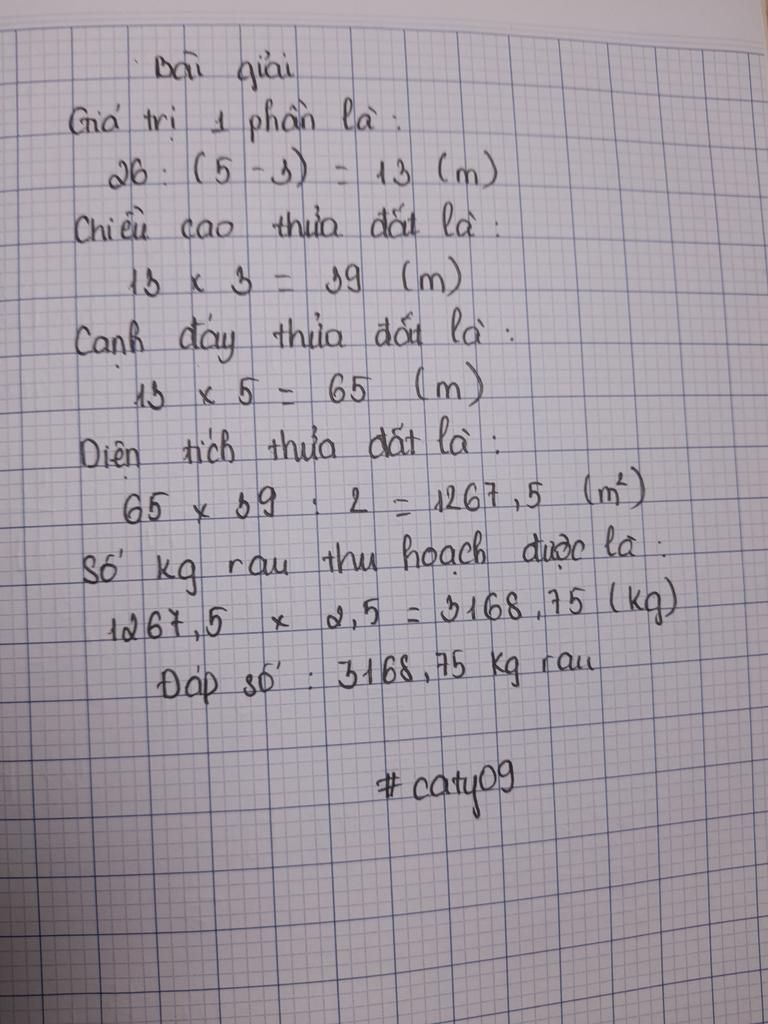 Bài giải
Giá trị 1 phần là :
26 : (5 - 3) = 13 (m)
Chiều cao thửa đất là :
13 x 3 = 39 (m)
Cạnh đáy thửa đất là :
13 x 5 = 65 (m)
Diện tích thửa đất là :
65 x 39 : 2 = 1267,5 (m²)
Số kg rau thu hoạch được là :
1267,5 x 2,5 = 3168,75 (kg)
Đáp số : 3168,75 kg rau
#caty09